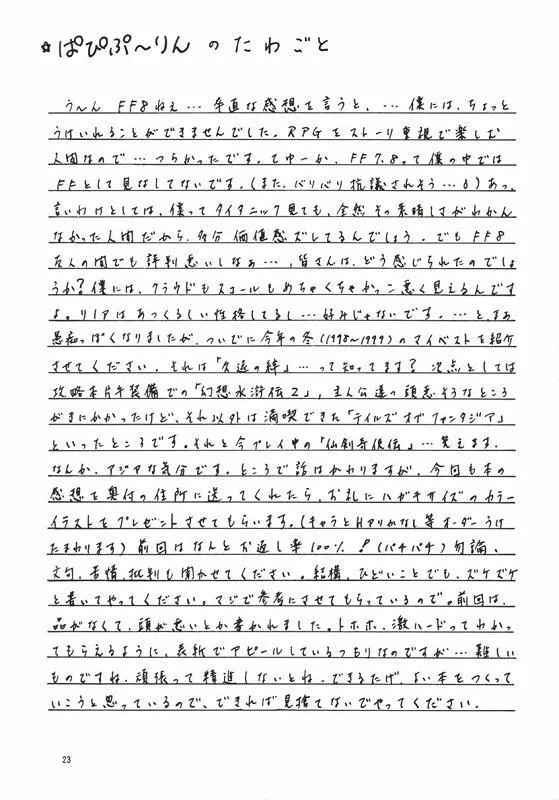 ☆ぱぴぷ〜りんのたわごと
う〜ん FF8ねぇ…率直な感想を言うと、…僕には、ちょっと
うけいれることができませんでした。RPGをストーリ重視で楽しむ
人間なので…つらかったです。てゆーか、FF7.8って僕の中では
FFとして見なしてないです。(また、バリバリ抗議されそう…6)あっ、
言いわけとしては、僕ってタイタニック見ても、全然その素晴しさがわかん
なかった人間だから、多分価値感ズレてるんでしょう。でもFF8
友人の間でも評判悪いしなぁ…、皆さんは、どう感じられたのでしょ
うか?僕には、クラウドもスコールもめちゃくちゃかっこ悪く見えるんです
よ。リノアはあつくるしい性格してるし…好みじゃないです。…と、まぁ
愚痴っぽくなりましたが、ついでに今年の冬(1998〜1999)のマイベストを紹介
させてください。それは「久遠の絆」…って知ってます?次点としては
攻略本片手装備での「幻想水滸伝2」,主人公達の頭悪そうなところ
がきにかかったけど、それ以外は満喫できた「テイルズオブファンタジア」
といったところです。それと今プレイ中の「仙剣奇侠伝」…笑えます。
なんか、アジアな気分です。ところで話はかわりますが、今回も本の
感想を奥付の住所に送ってくれたら、お礼にハガキサイズのカラー
イラストをプレゼントさせてもらいます。(キャラとHアリかなし等オーダーうけ
たまわります)前回はなんとお返し率100%!(パチパチ)勿論、
文句、苦情、批判も聞かせてください。結構、ひどいことでも、ズケズケ
と書いてやってください。マジで参考にさせてもらっているので。前回は、
品がなくて、頭が悪いとか書かれました。トホホ、激ハードってわかっ
てもらえるように、表紙でアピールしているつもりなのですが…難しい
ものですね。頑張って精進しないとね。できるだけ、よい本をつくって
いこうと思っているので、できれば見捨てないでやってください。
23